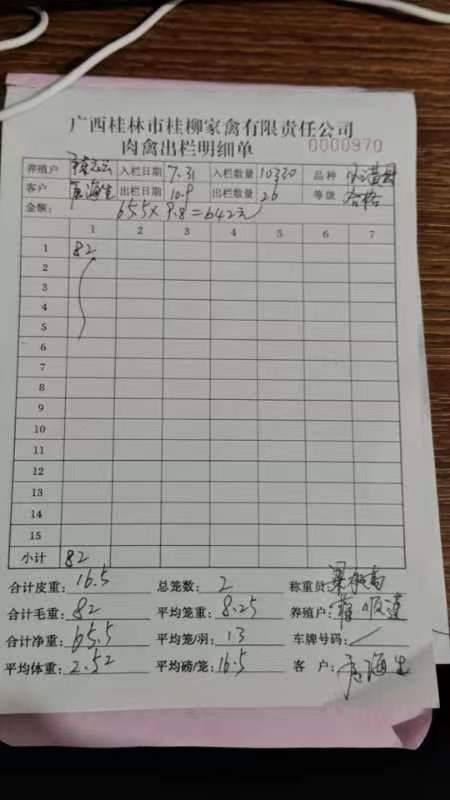 广西桂林市桂柳家禽有限责任公司
肉禽出栏明细单 0000970
养殖户 入栏日期 7.31 入栏数量 10330 品种
客户 唐海生 出栏日期 10.9 出栏数量 26 等级 合格
金额: 65.5×9.8=642元
1 2 3 4 5 6 7
1 82
2
3
4
5
6
7
8
9
10
11
12
13
14
15
小计 82
合计皮重: 16.5 总笼数: 2 称重员:
合计毛重: 82 平均笼重: 8.25 养殖户:
合计净重: 65.5 平均笼/羽: 13 车牌号码:
平均体重: 2.52 平均磅/笼: 16.5 客 户: 唐海生